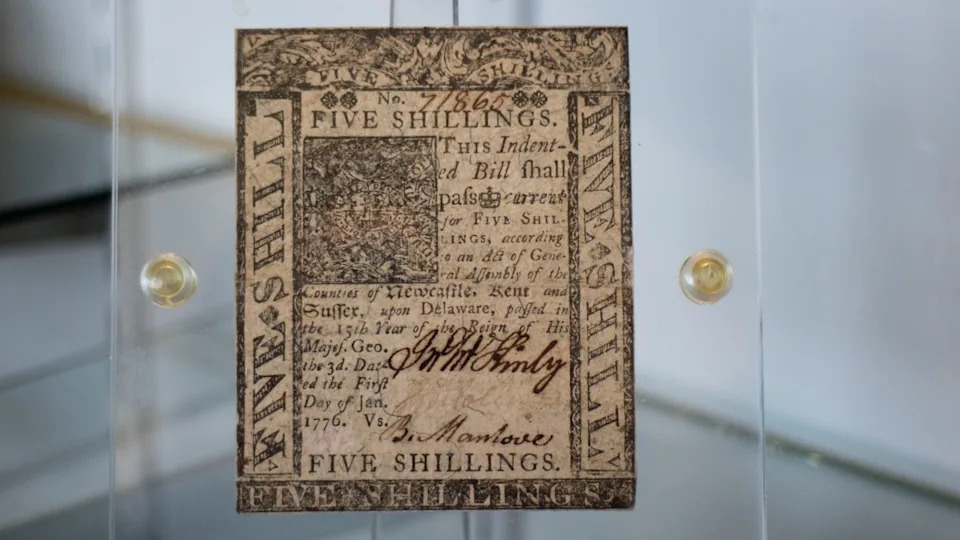 FIVE SHILLING
No. 71865
FIVE SHILLINGS.
FIVE SHILL
THIS Indent-
ed Bill ſhall
paſs current
for FIVE SHIL-
LINGS, according
to an Act of Gene-
ral Aſſembly of the
Counties of Newcaſtle, Kent and
Suſſex, upon Delaware, paſſed in
the 15th Year of the Reign of His
Majeſ. Geo.
the 3d. Dat-
ed the Firſt
Day of Jan.
1776. Vs.
Jno McKinly
B. Manlove
FIVE SHILL
FIVE SHILLINGS.
FIVE SHILLINGS